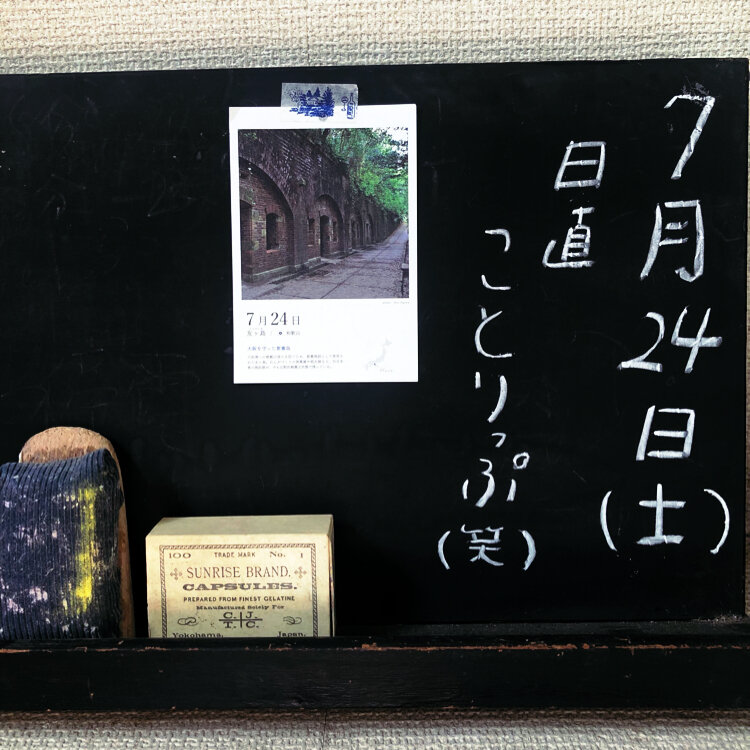 7月24日(土)
日直
ことりっぷ(笑)
7月24日
100 TRADE MARK No. 1
SUNRISE BRAND.
CAPSULES.
PREPARED FROM FINEST GELATINE
Manufactured Solely For
C. J.
T. C.
Yokohama, Japan.